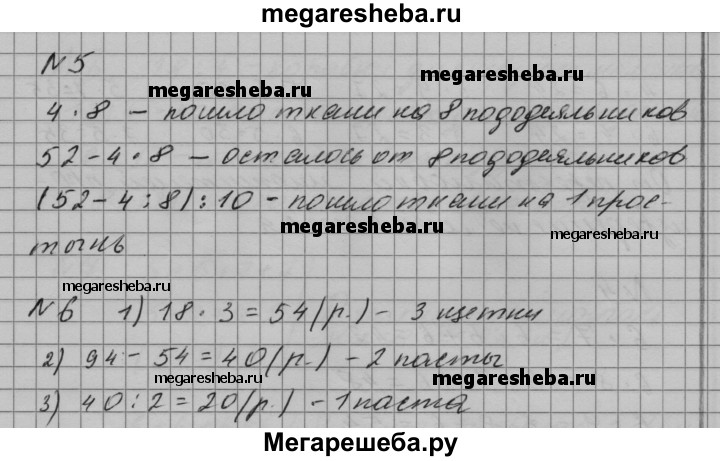 megaresheba.ru
N5
megaresheba.ru
megaresheba.ru
4 · 8 – пошло ткани на 8 пододеяльников
52 – 4 · 8 – осталось от 8 пододеяльников
(52 – 4 : 8) : 10 – пошло ткани на 1 прос-
megaresheba.ru
megaresheba.ru
тынь
megaresheba.ru
N6 1) 18 · 3 = 54 (р.) – 3 щетки
2) 94 – 54 = 40 (р.) – 2 пасты
megaresheba.ru
megaresheba.ru
3) 40 : 2 = 20 (р.) – 1 паста
Мегарешеба.ру